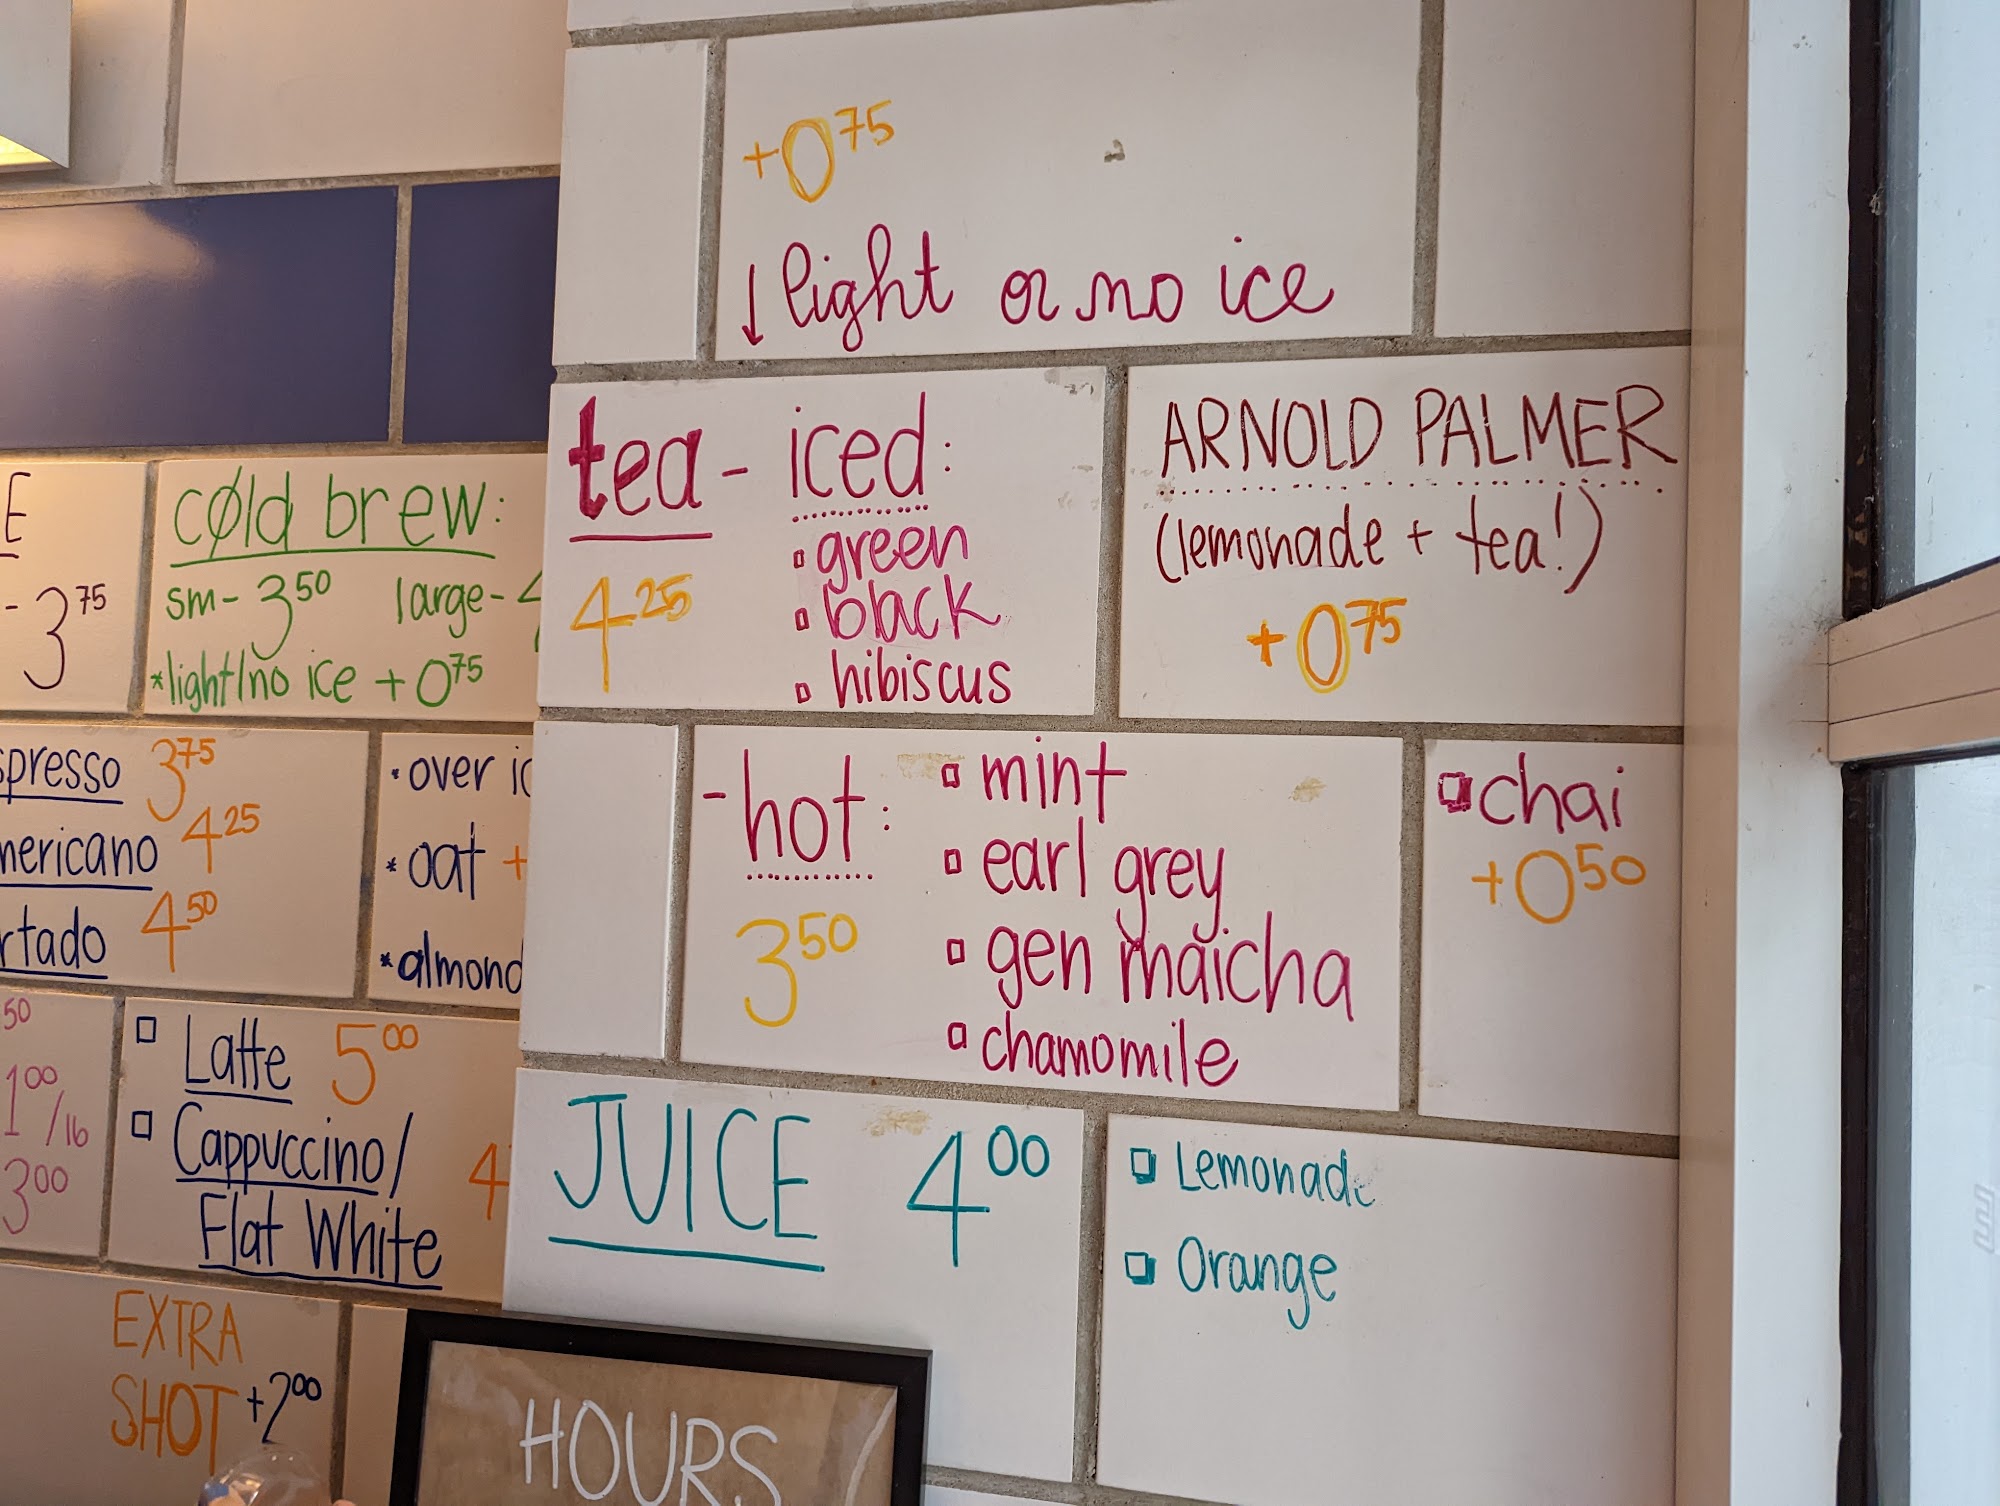 +0.75
↓ light or no ice
tea - iced:
4.25
▫ green
▫ black
▫ hibiscus
ARNOLD PALMER
(lemonade + tea!)
+0.75
- hot:
3.50
▫ mint
▫ earl grey
▫ gen maicha
▫ chamomile
▫ chai
+0.50
JUICE 4.00
▫ Lemonade
▫ Orange
E
- 3.75
cold brew:
sm- 3.50 large-
*light/no ice +0.75
3.75
4.25
4.50
*over
*oat +
*almond
50
1.00/16
3.00
▫ Latte 5.00
▫ Cappuccino/ 4
Flat White
EXTRA
SHOT +2.00
HOURS